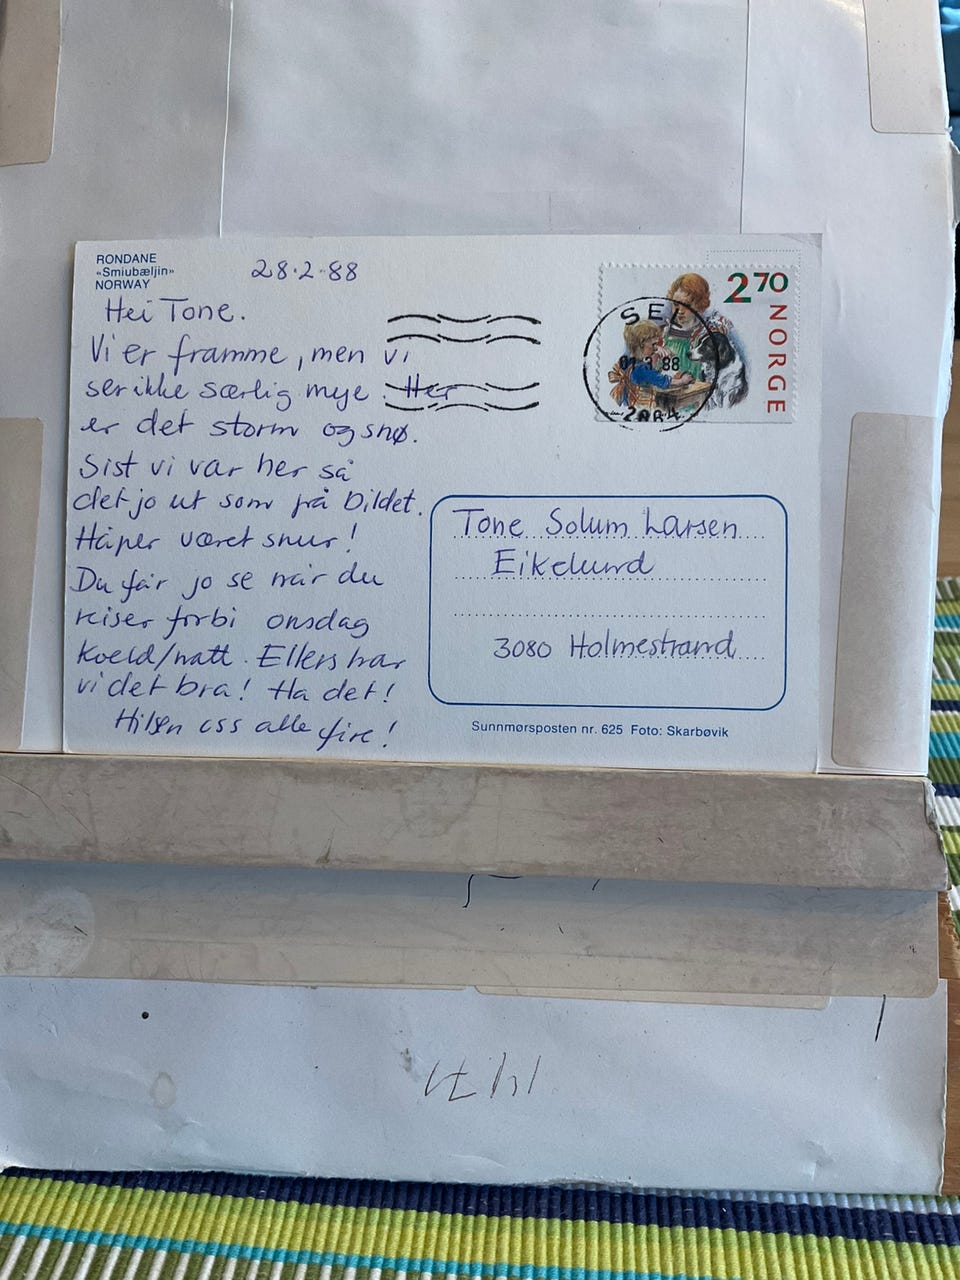 RONDANE
«Smiubæljin»
NORWAY
28.2.88
Hei Tone.
Vi er framme, men vi
ser ikke særlig mye. Her
er det storm og snø.
Sist vi var her så
det jo ut som på bildet.
Håper været snur!
Du får jo se når du
reiser forbi onsdag
kveld/natt. Ellers har
vi det bra! Ha det!
Hilsen oss alle fire!
270
NORGE
SEL
88
Tone Solum Larsen
Eikelund
3080 Holmestrand
Sunnmørsposten nr. 625 Foto: Skarbøvik